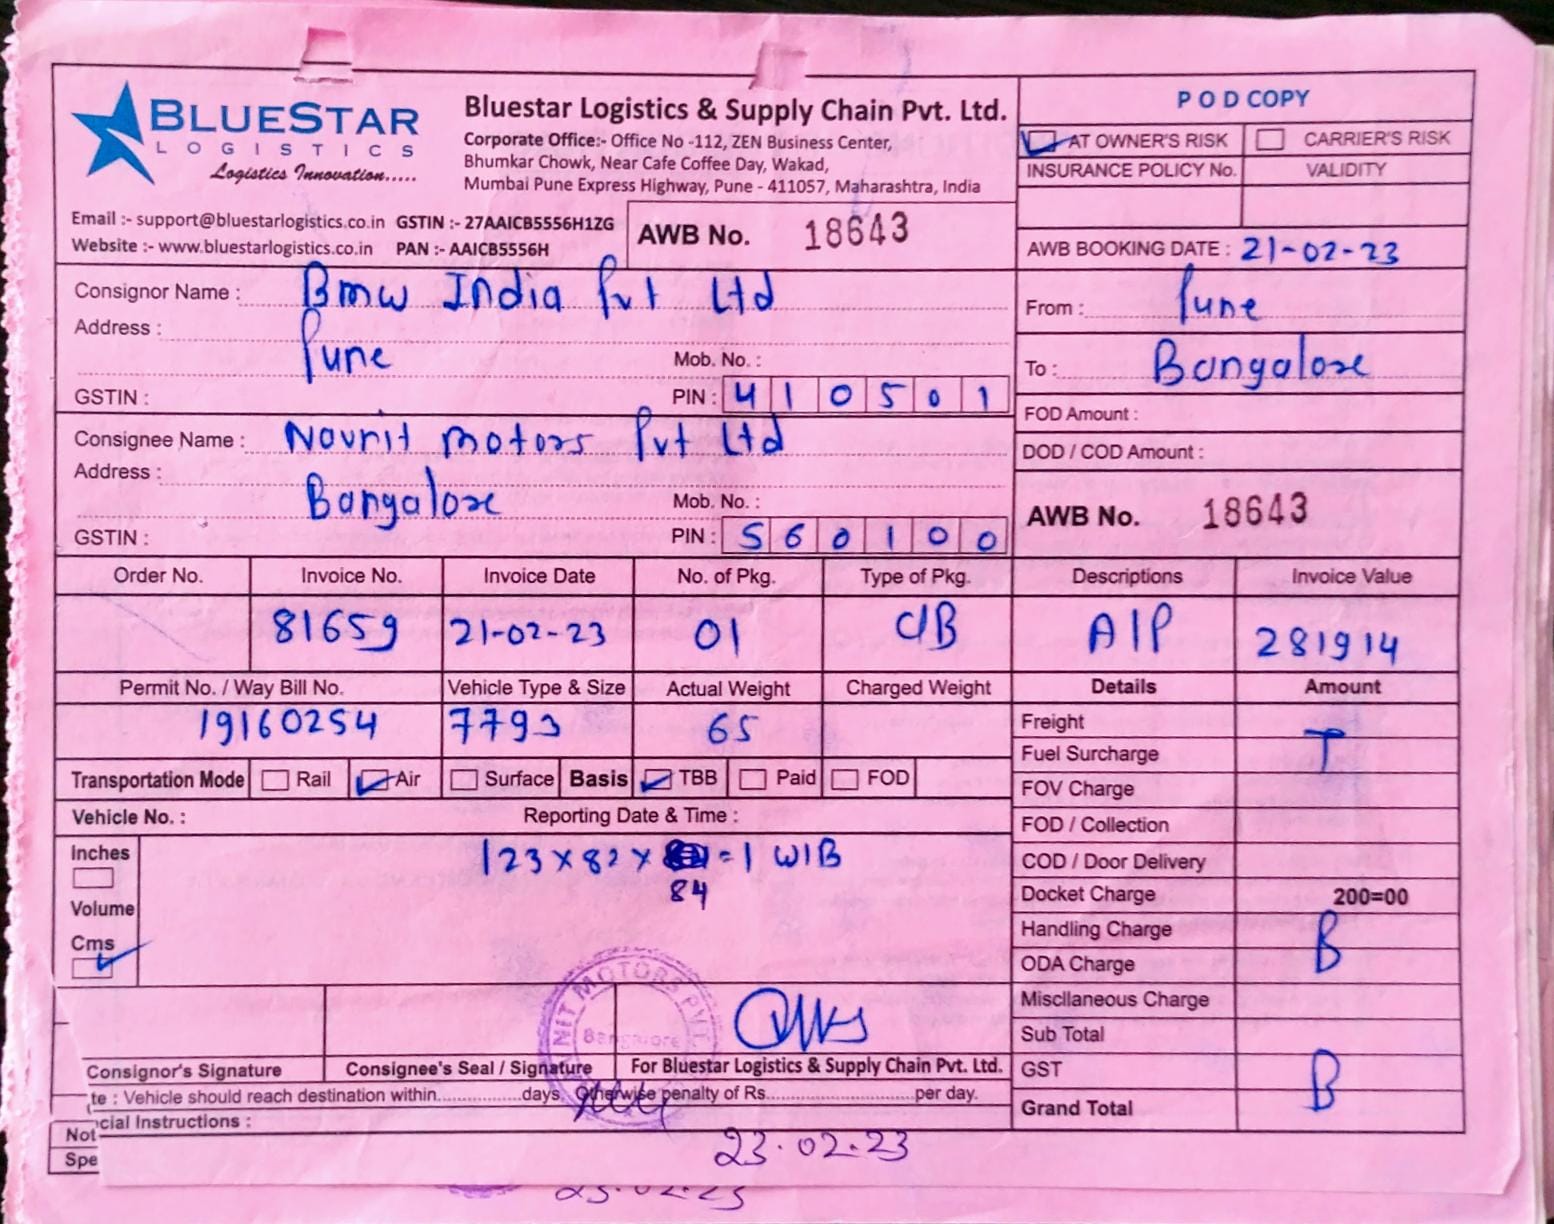 BLUESTAR
LOGISTICS
Logistics Innovation.....
Bluestar Logistics & Supply Chain Pvt. Ltd.
Corporate Office:- Office No -112, ZEN Business Center,
Bhumkar Chowk, Near Cafe Coffee Day, Wakad,
Mumbai Pune Express Highway, Pune - 411057, Maharashtra, India
Email :- support@bluestarlogistics.co.in GSTIN :- 27AAICB5556H1ZG
Website :- www.bluestarlogistics.co.in PAN :- AAICB5556H
AWB No. 18643
POD COPY
AT OWNER'S RISK CARRIER'S RISK
INSURANCE POLICY No. VALIDITY
AWB BOOKING DATE : 21-02-23
Consignor Name : Bmw India Pvt Ltd
Address :
Pune Mob. No. :
GSTIN : PIN : 410501
From : Pune
To : Bangalore
FOD Amount :
DOD / COD Amount :
Consignee Name : Navnit motors Pvt Ltd
Address :
Bangalore Mob. No. :
GSTIN : PIN : 560100
AWB No. 18643
Order No. Invoice No. Invoice Date No. of Pkg. Type of Pkg. Descriptions Invoice Value
81659 21-02-23 01 C/B A/P 281914
Permit No. / Way Bill No. Vehicle Type & Size Actual Weight Charged Weight Details Amount
19160254 7793 65
Transportation Mode Rail Air Surface Basis TBB Paid FOD
Vehicle No. : Reporting Date & Time :
Inches
Volume
Cms
123 x 82 x = 1 W/B
84
Freight
T
Fuel Surcharge
FOV Charge
FOD / Collection
COD / Door Delivery
Docket Charge 200=00
Handling Charge
B
ODA Charge
Miscllaneous Charge
Sub Total
GST
B
Grand Total
NIT MOTORS PVT.
Bangalore
Consignor's Signature Consignee's Seal / Signature For Bluestar Logistics & Supply Chain Pvt. Ltd.
te : Vehicle should reach destination within.................days. Otherwise penalty of Rs...............................per day.
cial Instructions :
Not
Spe
23.02.23
23.02.23